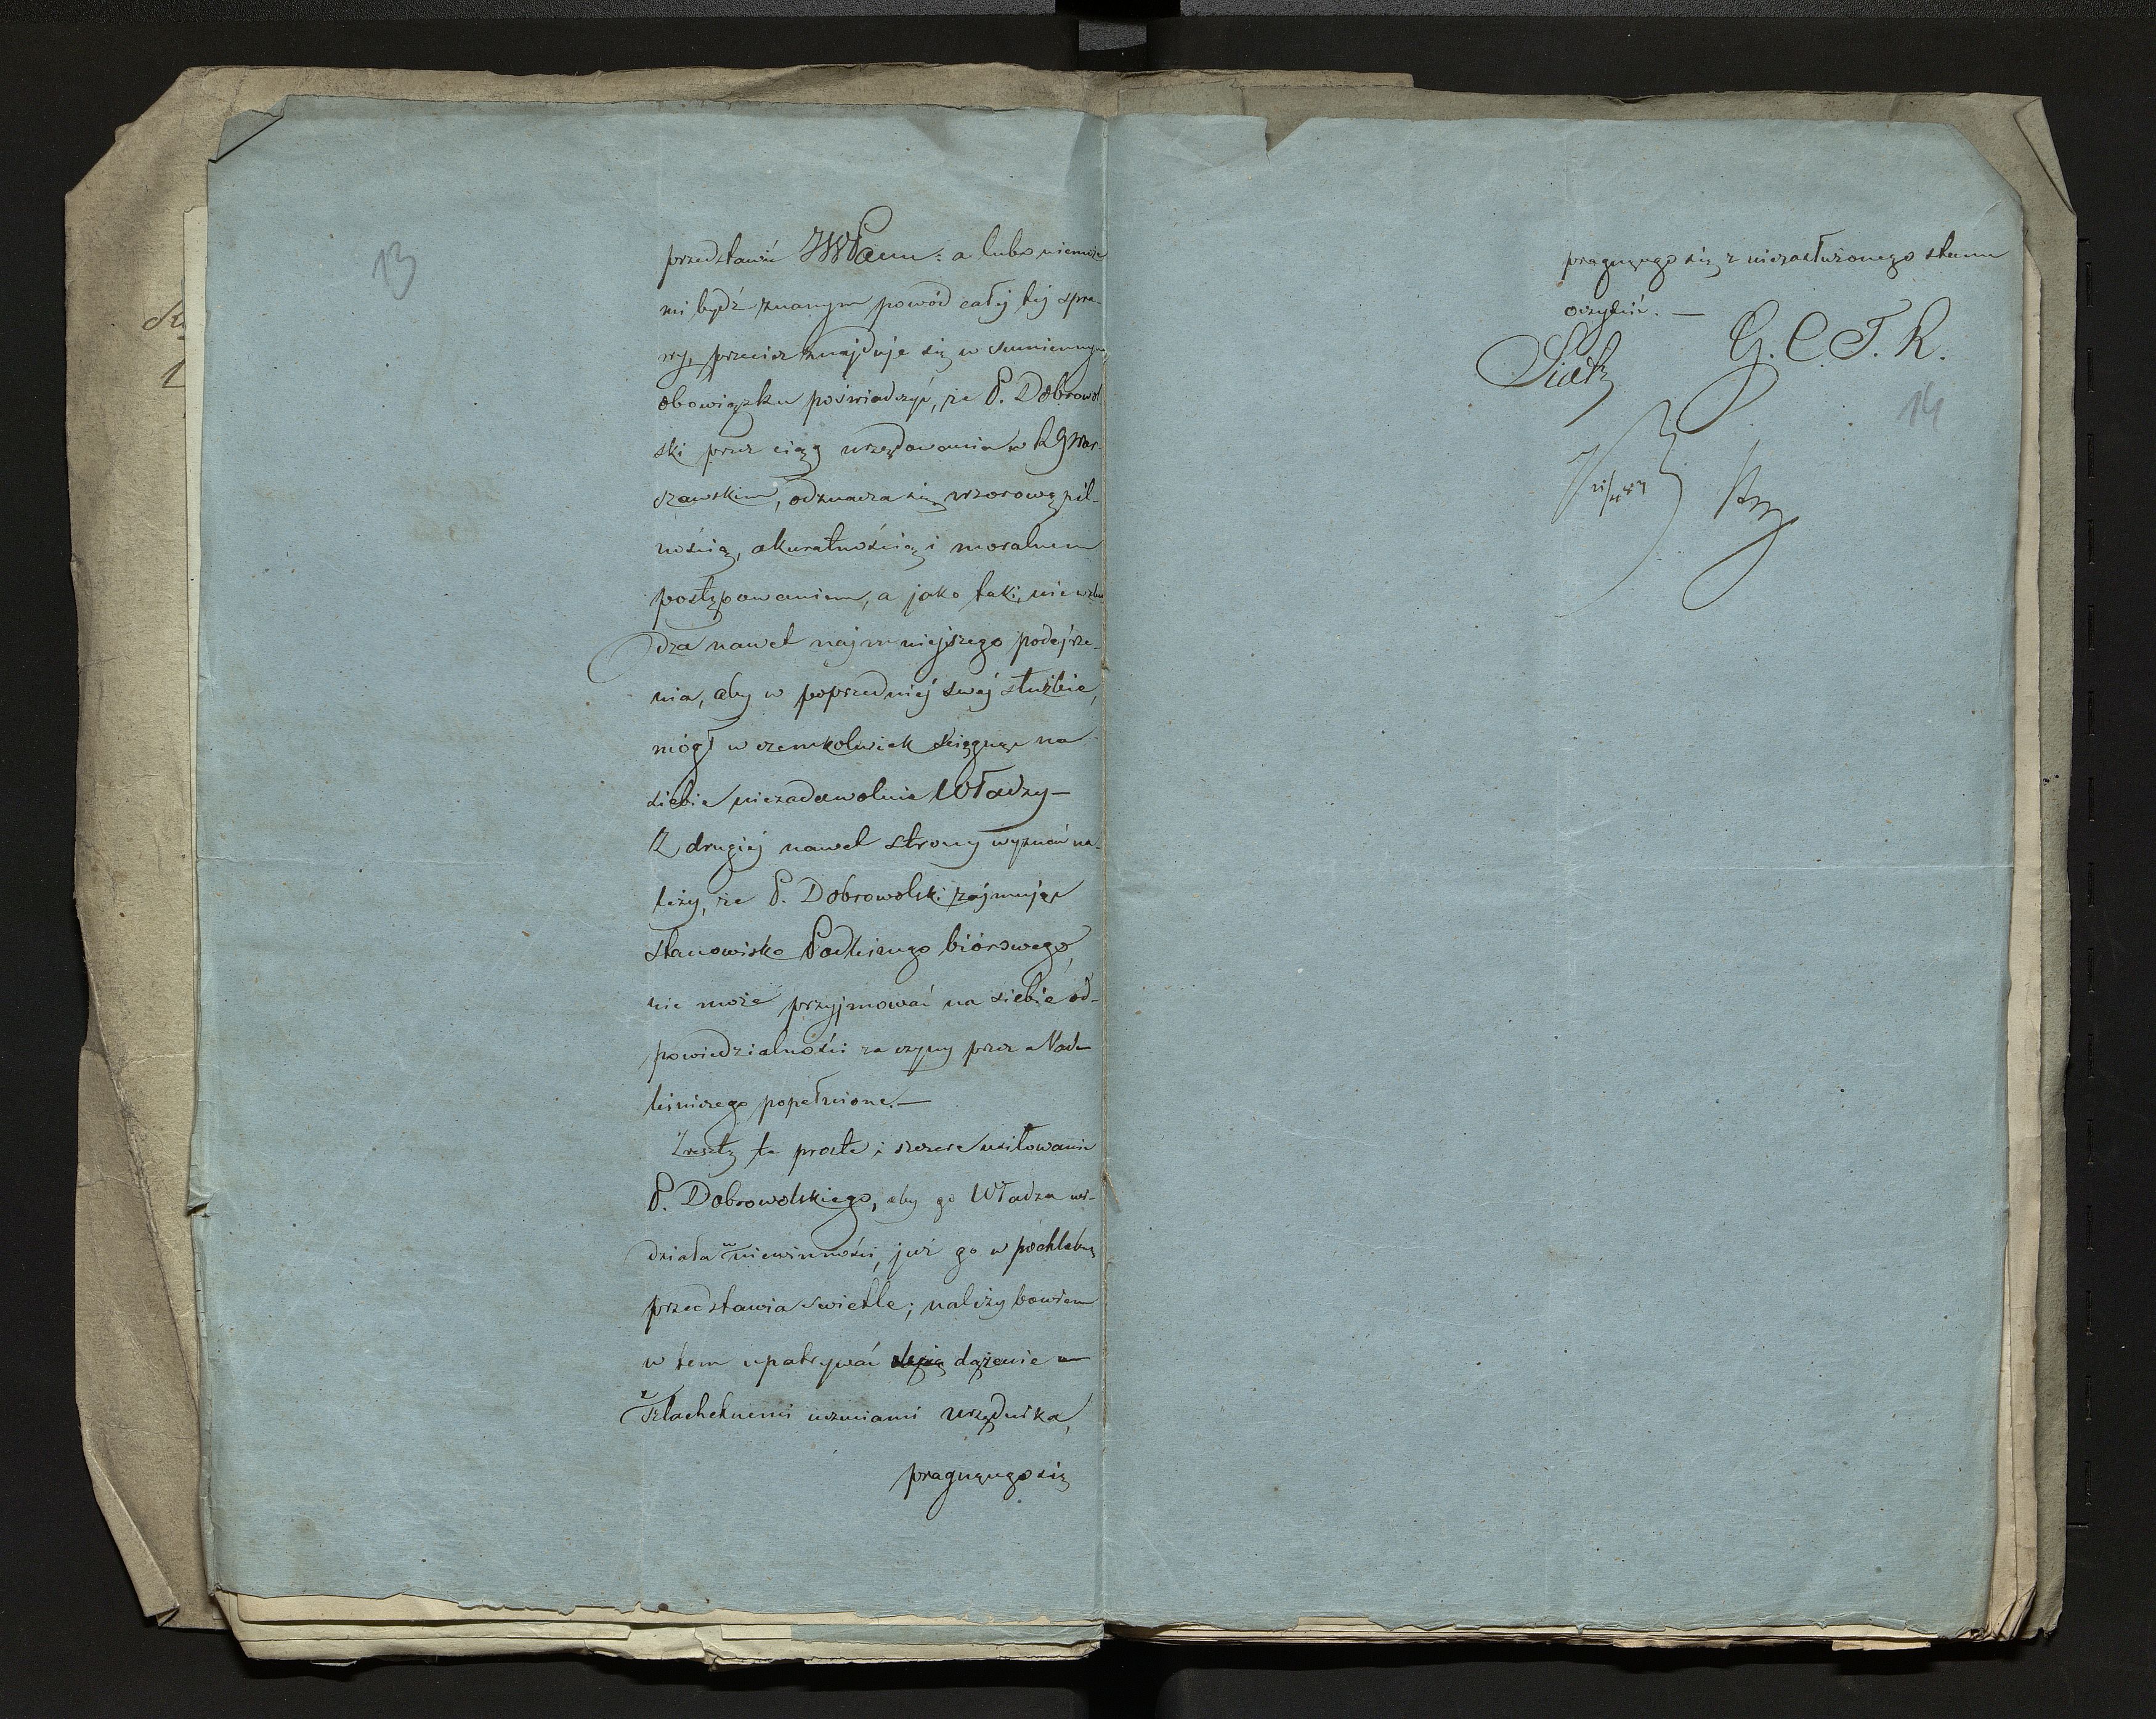 13
przedstawić JWPanu: a lubo niemoże
mi bydź znanym powód całej tej spra-
wy, przecież znajduje się w sumiennym
obowiązku poświadczyć, że P. Dobrowol
ski przez ciąg urzędowania w R G War-
szawskim, odznacza się wzorową pil-
nością, akuratnością i moralnem
postępowaniem, a jako taki, nie wzbu
dza nawet najmniejszego podejrze-
nia, aby w poprzedniej swej służbie,
mógł w czemkolwiek ściągnąć na
siebie niezadowolnie Władzy —
Z drugiej nawet strony wyznać na-
leży, że P. Dobrowolski zajmując
stanowisko Podleśnego biórowego,
nie może przyjmować na siebie od-
powiedzialności za czyny przez Nad-
leśniczego popełnione. —
Zresztą te proste i szczere usiłowanie
P. Dobrowolskiego, aby go Władza wi-
działa w niewinności, już go w pochlebnem
przedstawia świetle; należy bowiem
w tem upatrywać dążenie
szlachetnemi uczuciami urzędnika,
pragnącego się
pragnącego się z niezasłużonego stanu
oczyścić. —
G. C. T. R.
14